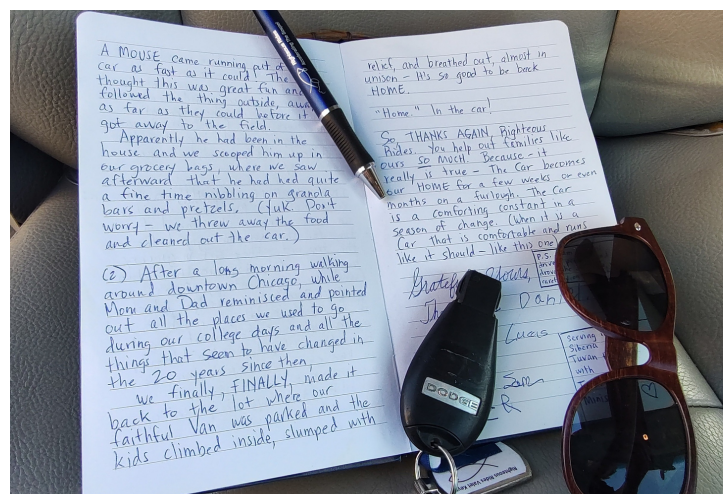 A MOUSE came running out of
car as fast as it could! The
thought this was great fun and
followed the thing outside,
as far as they could before it
got away to the field.
Apparently he had been in the
house and we scooped him up in
our grocery bags, where we saw
afterward that he had had quite
a fine time nibbling on granola
bars and pretzels. (Yuk. Don't
worry - we threw away the food
and cleaned out the car.)
(2) After a long morning walking
around downtown Chicago, while
Mom and Dad reminisced and pointed
out all the places we used to go
during our college days and all the
things that seem to have changed in
the 20 years since then,
we finally, FINALLY, made it
back to the lot where our
faithful Van was parked and the
kids climbed inside, slumped with
relief, and breathed out, almost in
unison - It's so good to be back
HOME.
"Home." In the car!
So, THANKS AGAIN, Righteous
Rides. You help out families like
ours SO MUCH. Because - it
really is true - The Car becomes
our HOME for a few weeks or even
months on a furlough. The Car
is a comforting constant in a
season of change. (When it is a
Car that is comfortable and runs
like it should - like this one
P.S.
Gratefully Yours,
Dan
Lucas
Sam
Serving
Siberia
Tuvan
with
DODGE
Righteous Rides Valet Key